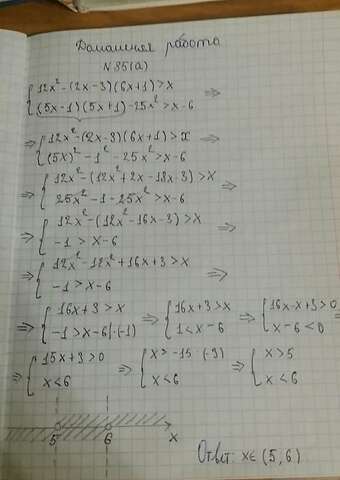 Домашняя работа
№ 85(а)
{ 12x² - (2x-3)(6x+1) > x ⇒
{ (5x-1)(5x+1) - 25x² > x-6
⇒ { 12x² - (2x-3)(6x+1) > x ⇒
{ (5x)² - 1² - 25x² > x-6
⇒ { 12x² - (12x² + 2x - 18x - 3) > x ⇒
{ 25x² - 1 - 25x² > x-6
⇒ { 12x² - (12x² - 16x - 3) > x ⇒
{ -1 > x-6
⇒ { 12x² - 12x² + 16x + 3 > x ⇒
{ -1 > x-6
⇒ { 16x+3 > x ⇒ { 16x+3 > x ⇒ { 16x-x+3 > 0 ⇒
{ -1 > x-6 |·(-1) { 1 < x-6 { x-6 < 0
⇒ { 15x+3 > 0 ⇒ { x > -15·(-3) ⇒ { x > 5
{ x < 6 { x < 6 { x < 6
5 6 x
Ответ: x∈(5,6)